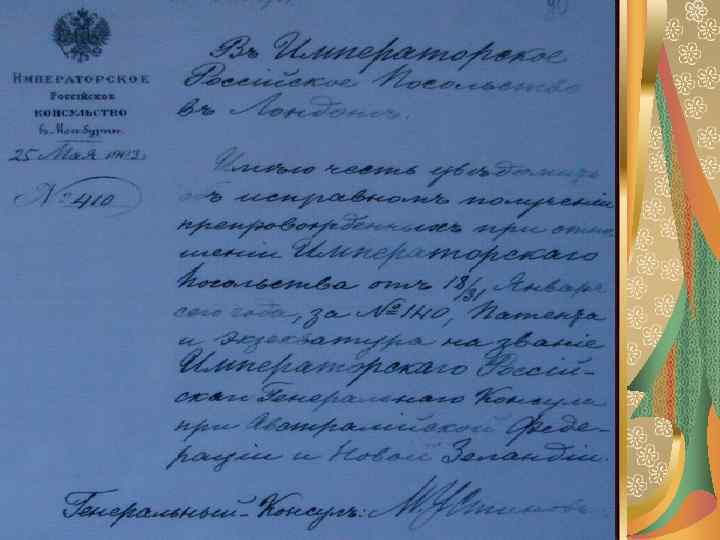 ИМПЕРАТОРСКОЕ
Россійское
КОНСУЛЬСТВО
въ Мельбурнѣ.
25 Мая 1903.
№ 410
Въ Императорское
Россійское Посольство
въ Лондонѣ.
Имѣю честь увѣдомить
объ исправномъ полученіи
препровожденныхъ при отно-
шеніи Императорскаго
Посольства отъ 18/31 Января
сего года, за № 140, Патента
и экзекватура на званіе
Императорскаго Россій-
скаго Генеральнаго Консула
при Австралійской Феде-
раціи и Новой Зеландіи.
Генеральный Консулъ: